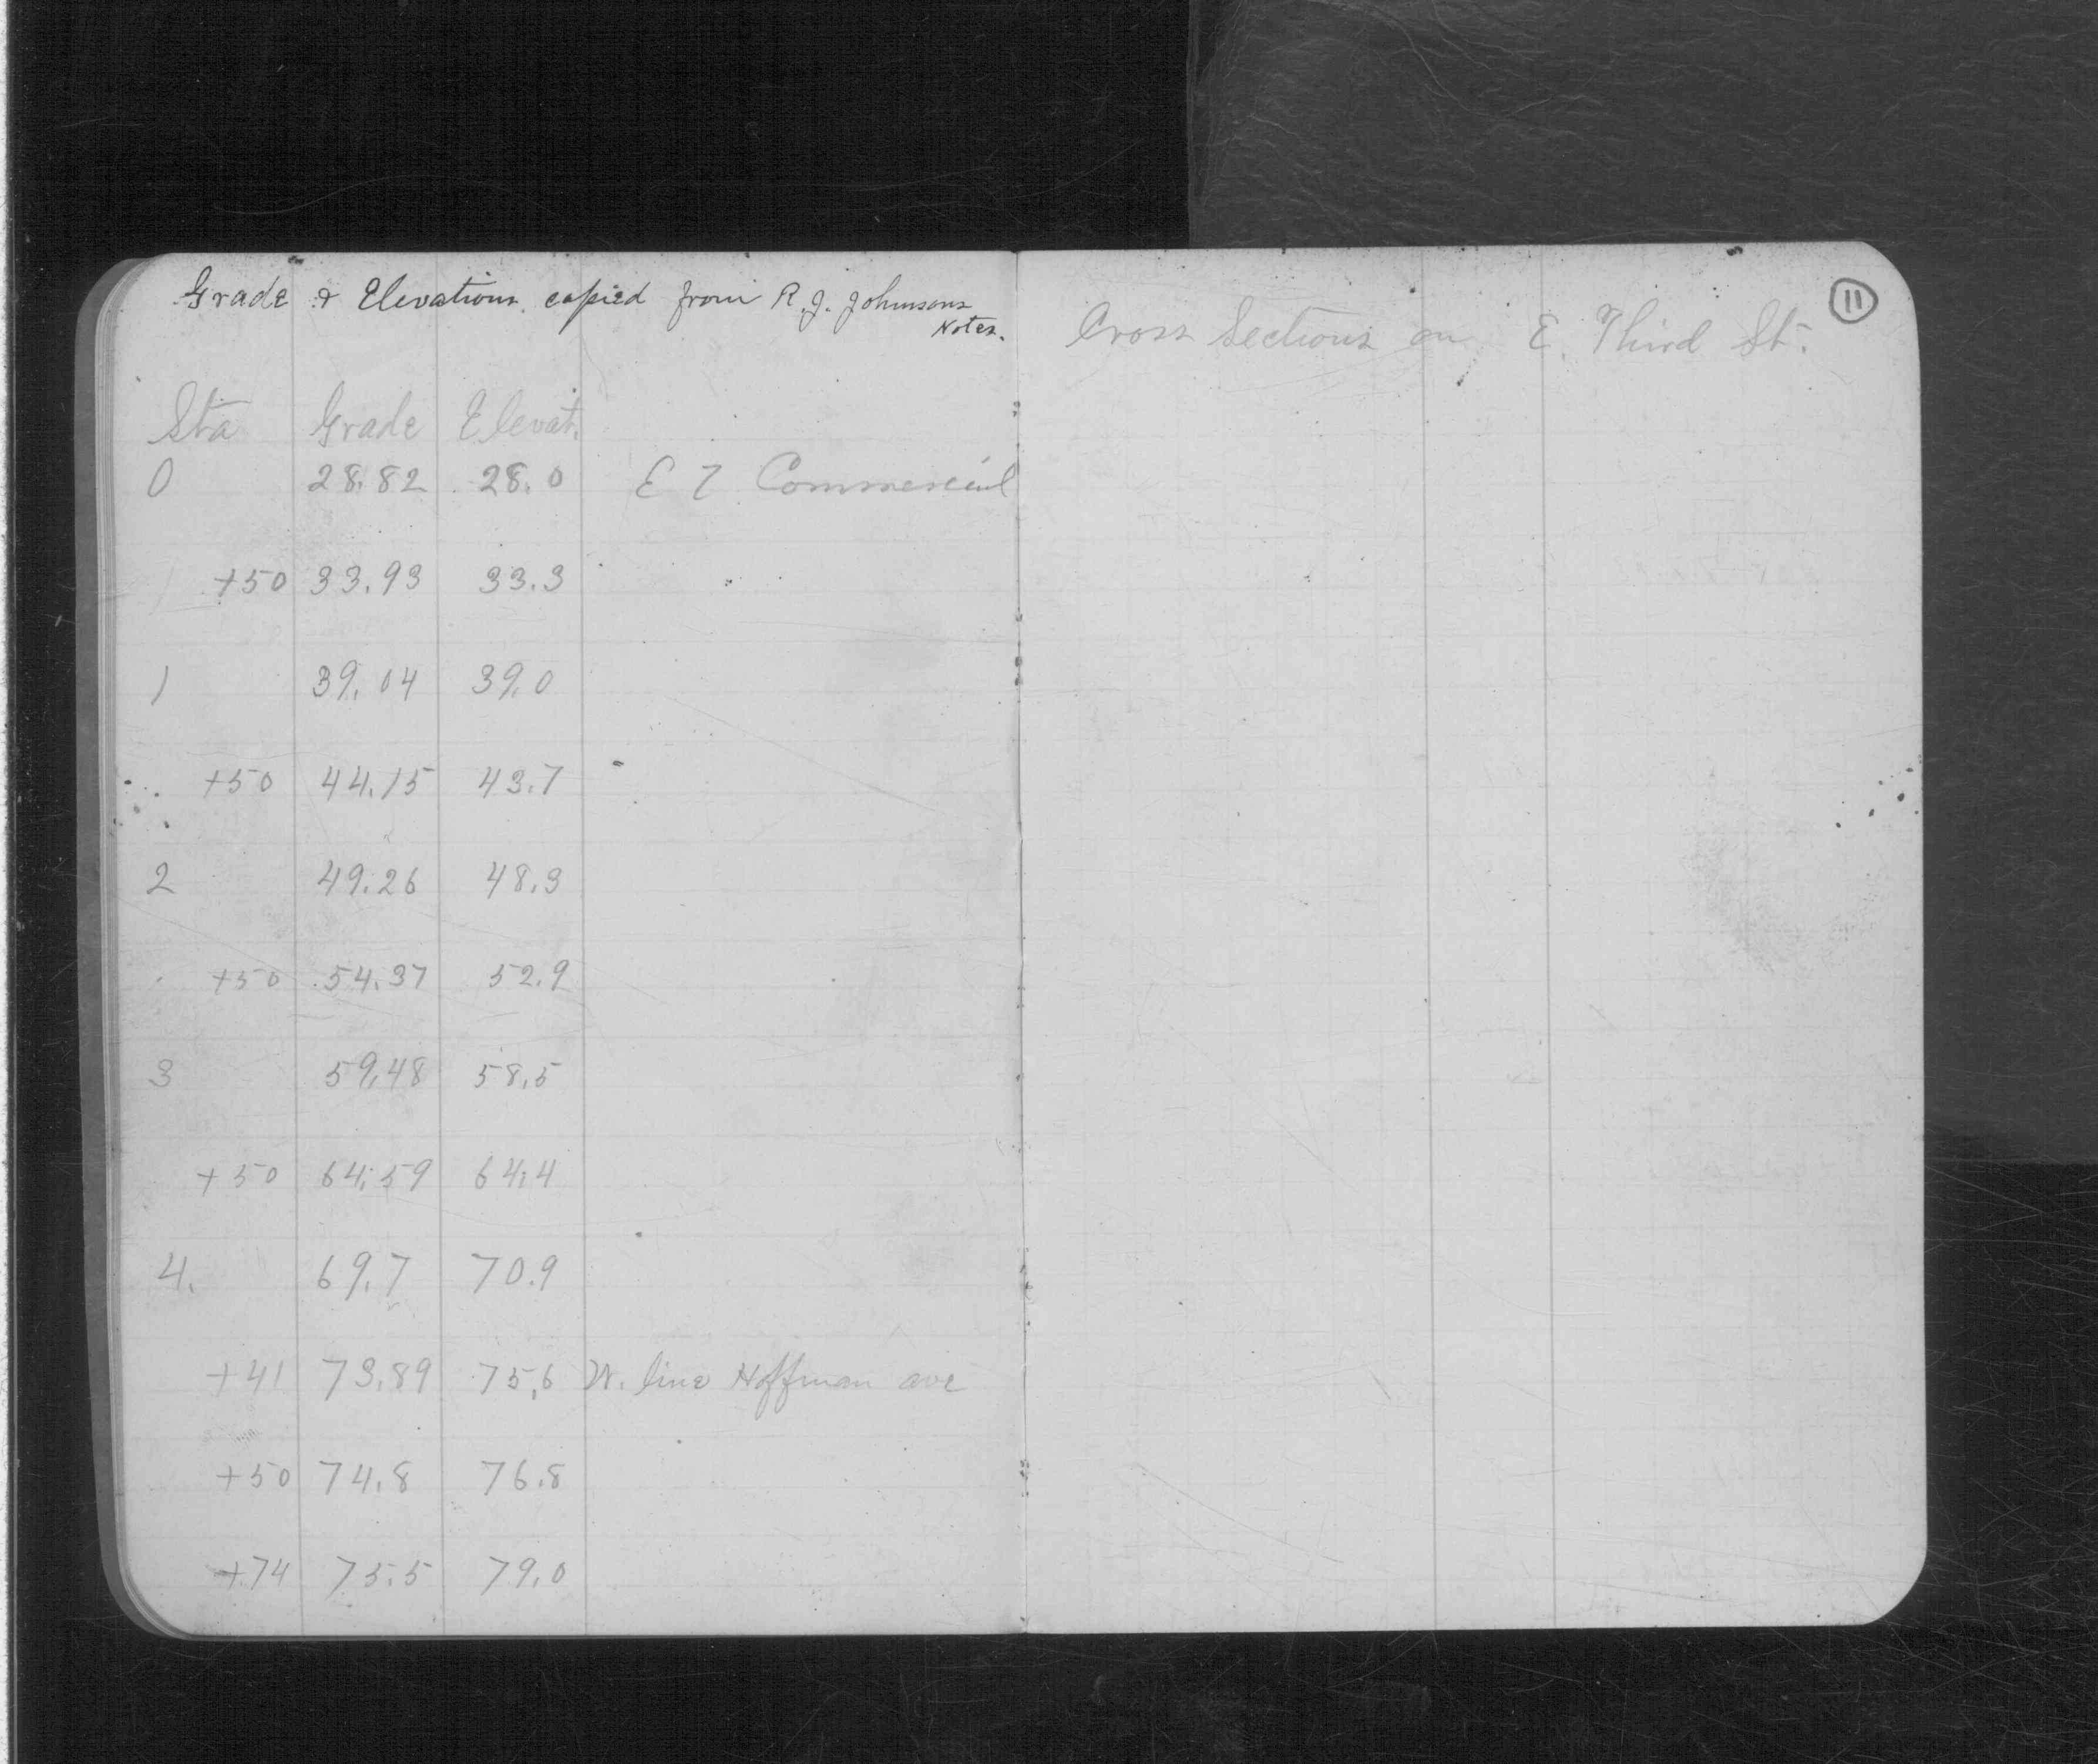 Grade & Elevations copied from R. J. Johnsons
Notes.
Sta Grade Elevat.
0 28.82 28.0 E Commercial
+50 33.93 33.3
1 39.04 39.0
+50 44.15 43.7
2 49.26 48.3
+50 54.37 52.9
3 59.48 58.5
+50 64.59 64.4
4. 69.7 70.9
+41 73.89 75.6 W. line Hoffman ave
+50 74.8 76.8
+74 75.5 79.0
11
Cross Sections on E. Third St.